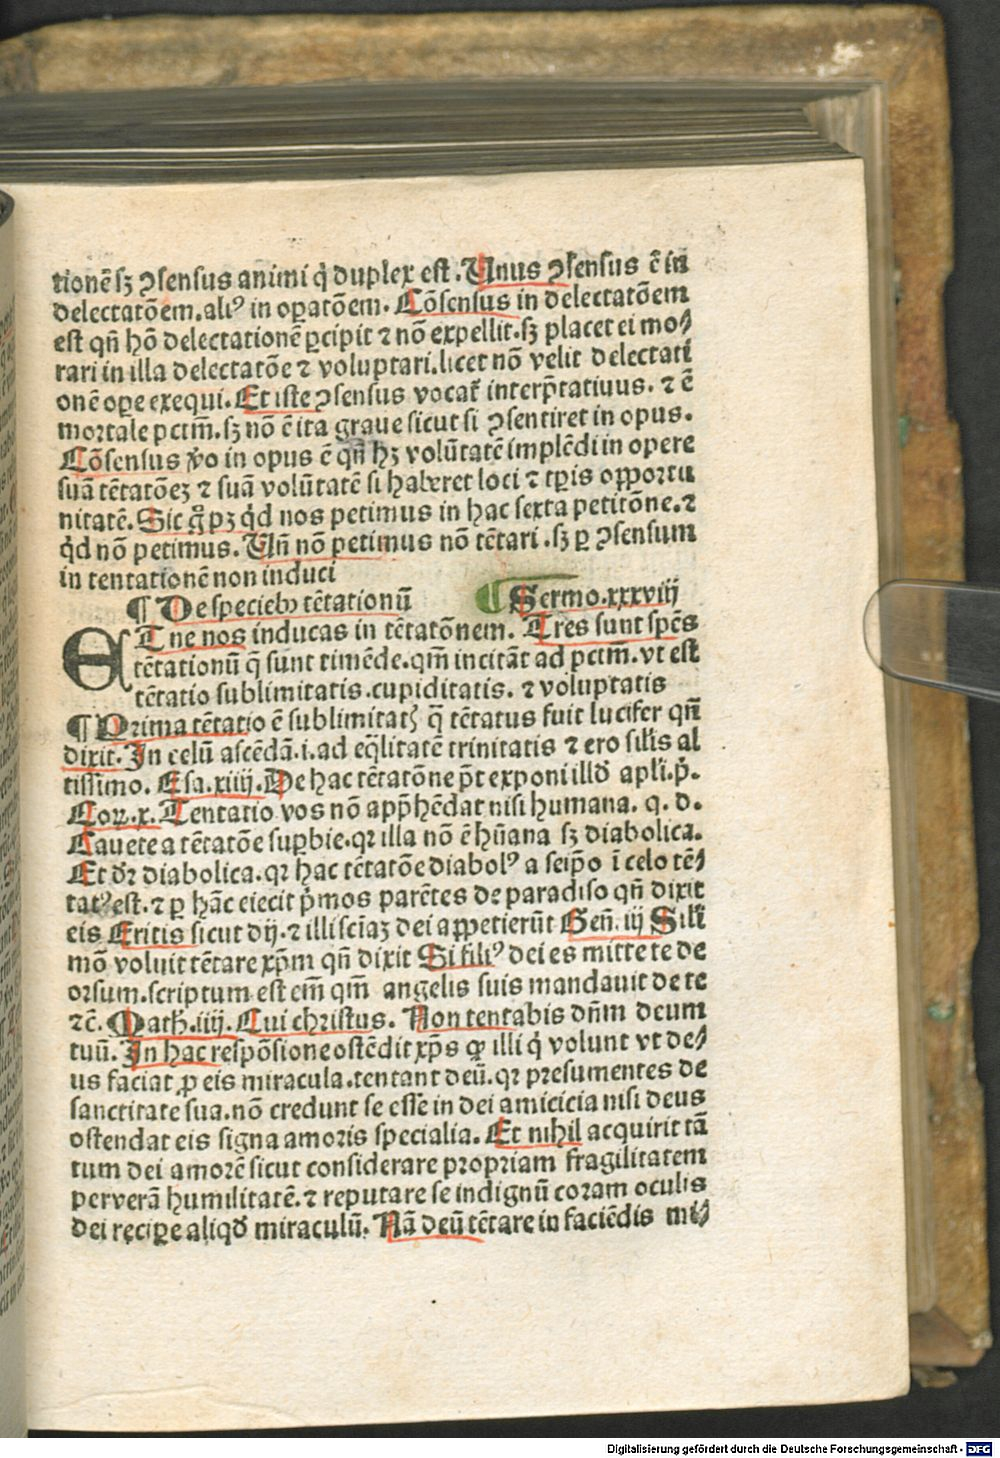 tionē sꝫ ꝯsensus animi q̇ duplex est. Unus ꝯsensus ē in
delectatōem. aliꝰ in oꝑatōem. Cōsensus in delectatōem
est qn̄ hō delectationē ꝑcipit ⁊ nō expellit. sꝫ placet ei mo⸗
rari in illa delectatōe ⁊ voluptari. licet nō velit delectati
onē oꝑe exequi. Et iste ꝯsensus vocat᷑ interp̄tatiuus. ⁊ ē
mortale pctm̄. sꝫ nō ē ita graue sicut si ꝯsentiret in opus.
Cōsensus v̆o in opus ē qn̄ hꝫ volūtatē implēdi in opere
suā tētatōeꝫ ⁊ suā volūtatē si haberet loci ⁊ tꝑis opportu
nitatē. Sic g̊ pꝫ q̇d nos petimus in hac sexta petitōne. ⁊
q̇d nō petimus. Un̄ nō petimus nō tētari. sꝫ ꝑ ꝯsensum
in tentationē non induci
¶ De specieb⁹ tētationū ¶ Sermo. xxxviij
ET ne nos inducas in tētatōnem. Tres sunt spēs
tētationū q̄ sunt timēde. qm̄ incitāt ad pctm̄. vt est
tētatio sublimitatis. cupiditatis. ⁊ voluptatis
¶ Prima tētatio ē sublimitatꝭ q̄ tētatus fuit lucifer qn̄
dixit. In celū ascēdā. i. ad eq̄litatē trinitatis ⁊ ero silis al
tissimo. Esa. xiiij. De hac tētatōne p̄t exponi illđ apli. p̄.
Corꝝ. x. Tentatio vos nō app̄hēdat nisi humana. q. d.
Cauete a tētatōe suꝑbie. qꝛ illa nō ē hūana sꝫ diabolica.
Et dꝛ diabolica. qꝛ hac tētatōe diabolꝰ a seip̄o ī celo tē⸗
tatꝰ est. ⁊ ꝑ hāc eiecit p̄mos parētes de paradiso qn̄ dixit
eis Eritis sicut dij. ⁊ illi sciaꝫ dei appetierūt Gen̄. iij Sili
mō voluit tētare xp̄m qn̄ dixit Si filiꝰ dei es mitte te de
orsum. scriptum est em̄ qm̄ angelis suis mandauit de te
⁊c̄. Math. iiij. Cui christus. Non tentabis dn̄m deum
tuū. In hac respōsione ostēdit xp̄s ꝙ illi q̇ volunt vt de⸗
us faciat ꝓ eis miracula. tentant deū. qꝛ presumentes de
sanctitate sua. nō credunt se esse in dei amicicia nisi deus
ostendat eis signa amoris specialia. Et nihil acquirit tā
tum dei amorē sicut considerare propriam fragilitatem
per verā humilitatē. ⁊ reputare se indignū coram oculis
dei reciꝑe aliqđ miraculū. Nā deū tētare in faciēdis mi⸗
Digitalisierung gefördert durch die Deutsche Forschungsgemeinschaft - DFG